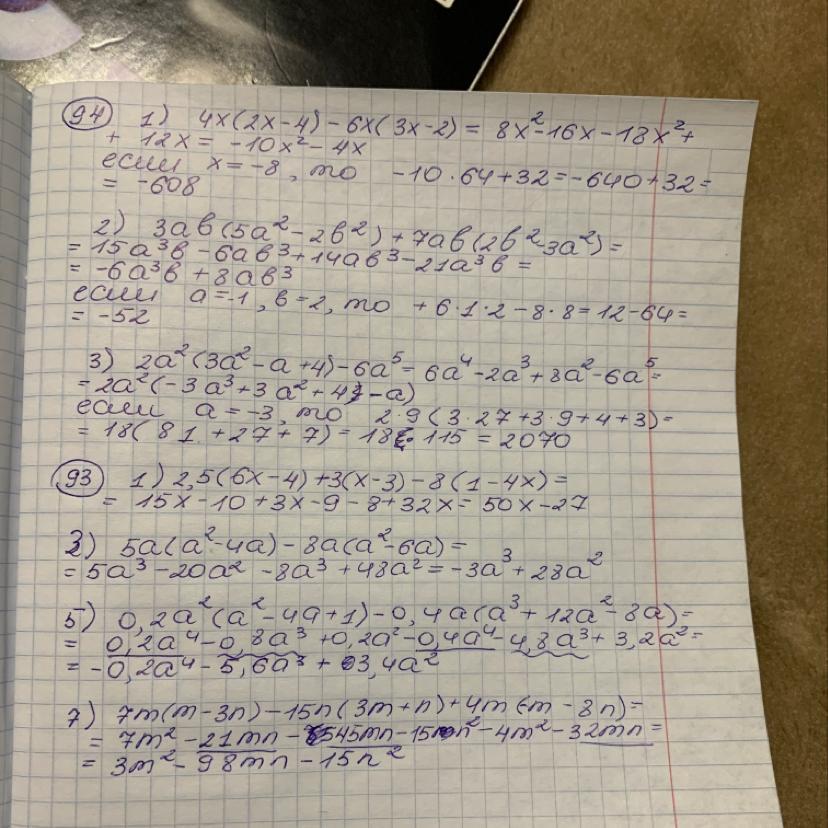 94 1) 4x(2x-4) - 6x(3x-2) = 8x²-16x-18x²+
+ 12x = -10x² - 4x
если x = -8, то -10·64+32 = -640+32 =
= -608
2) 3aв(5a²-2в²)+7aв(2в²-3a²) =
= 15a³в - 6aв³+14aв³-21a³в =
= -6a³в + 8aв³
если a=-1, в=2, то +6·1·2 - 8·8 = 12-64 =
= -52
3) 2a²(3a²-a+4) - 6a⁵ = 6a⁴ - 2a³ + 8a² - 6a⁵ =
= 2a²(-3a³+3a²+4-a)
если a = -3, то 2·9(3·27+3·9+4+3) =
= 18(81+27+7) = 18·115 = 2070
93 1) 2,5(6x-4)+3(x-3)-8(1-4x) =
= 15x-10+3x-9-8+32x = 50x-27
3) 5a(a²-4a) - 8a(a²-6a) =
= 5a³-20a² -8a³+48a² = -3a³+28a²
5) 0,2a²(a²-4a+1)-0,4a(a³+12a²-8a) =
= 0,2a⁴-0,8a³+0,2a²-0,4a⁴-4,8a³+3,2a² =
= -0,2a⁴-5,6a³+3,4a²
7) 7m(m-3n)-15n(3m+n)+4m(-m-8n) =
= 7m²-21mn-45mn-15n²-4m²-32mn =
= 3m²-98mn-15n²